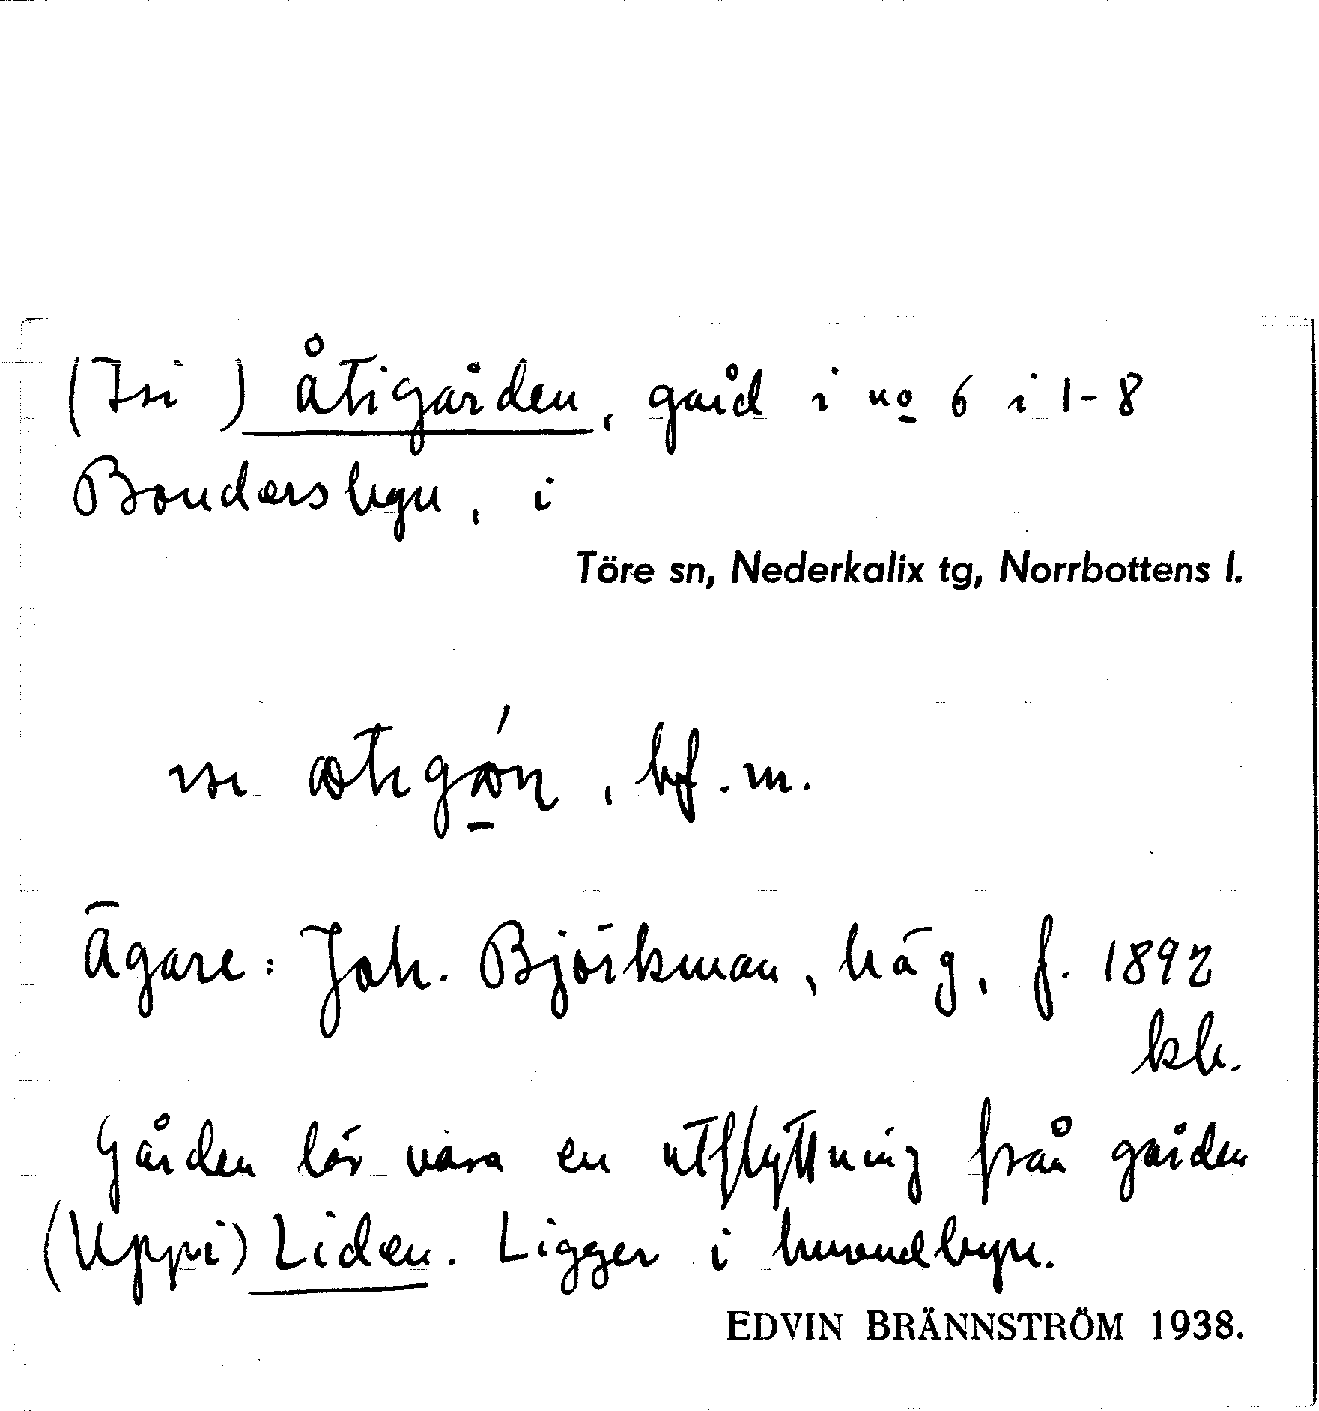 (Isi) Åtigården, gård i no 6 i 1-8
Bondersbyn, i
Töre sn, Nederkalix tg, Norrbottens l.
bf. m.
Ägare: Joh. Björkman, häg, f. 1892
kh.
Gården lär vara en utflyttning från gården
(Uppi) Liden. Ligger i huvudbyn.
EDVIN BRÄNNSTRÖM 1938.